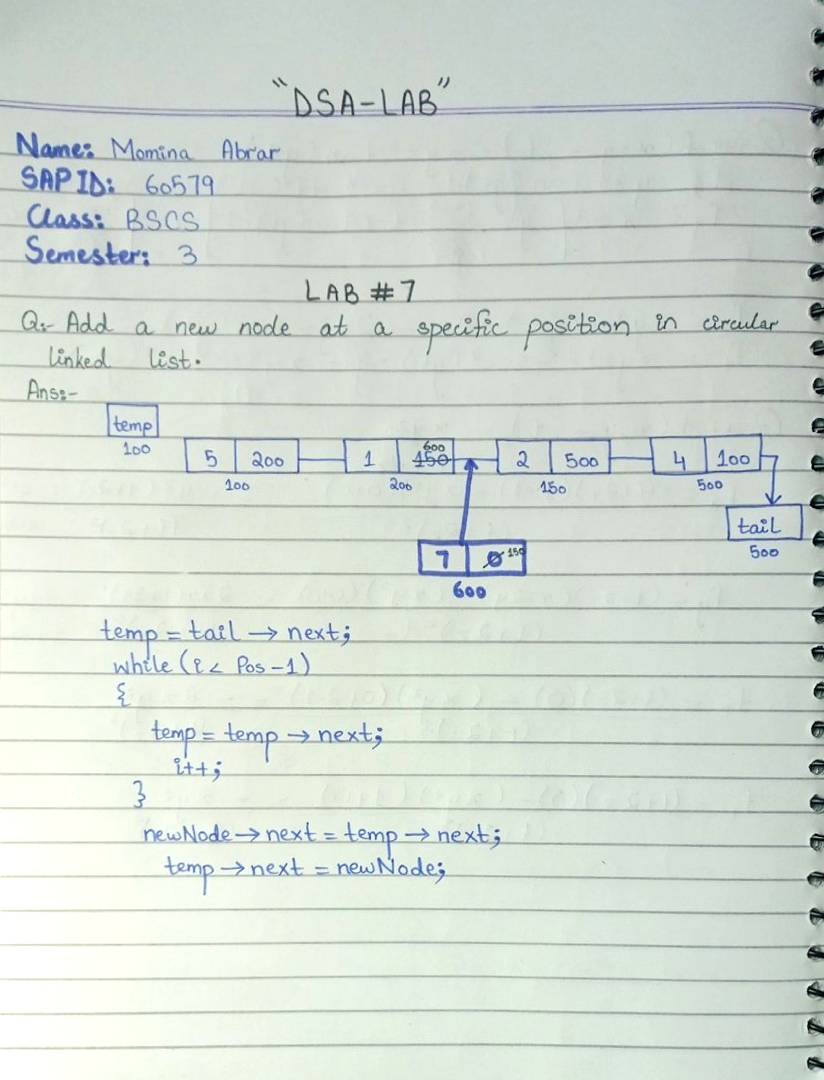 "DSA-LAB"
Name: Momina Abrar
SAP ID: 60579
Class: BSCS
Semester: 3
LAB #7
Q:- Add a new node at a specific position in circular
linked list.
Ans:-
temp
100
5 200 1 150 600 2 500 4 100
100 200 150 500
tail
500
7 0 150
600
temp = tail → next;
while (i < Pos - 1)
{
temp = temp → next;
i++;
}
newNode → next = temp → next;
temp → next = newNode;